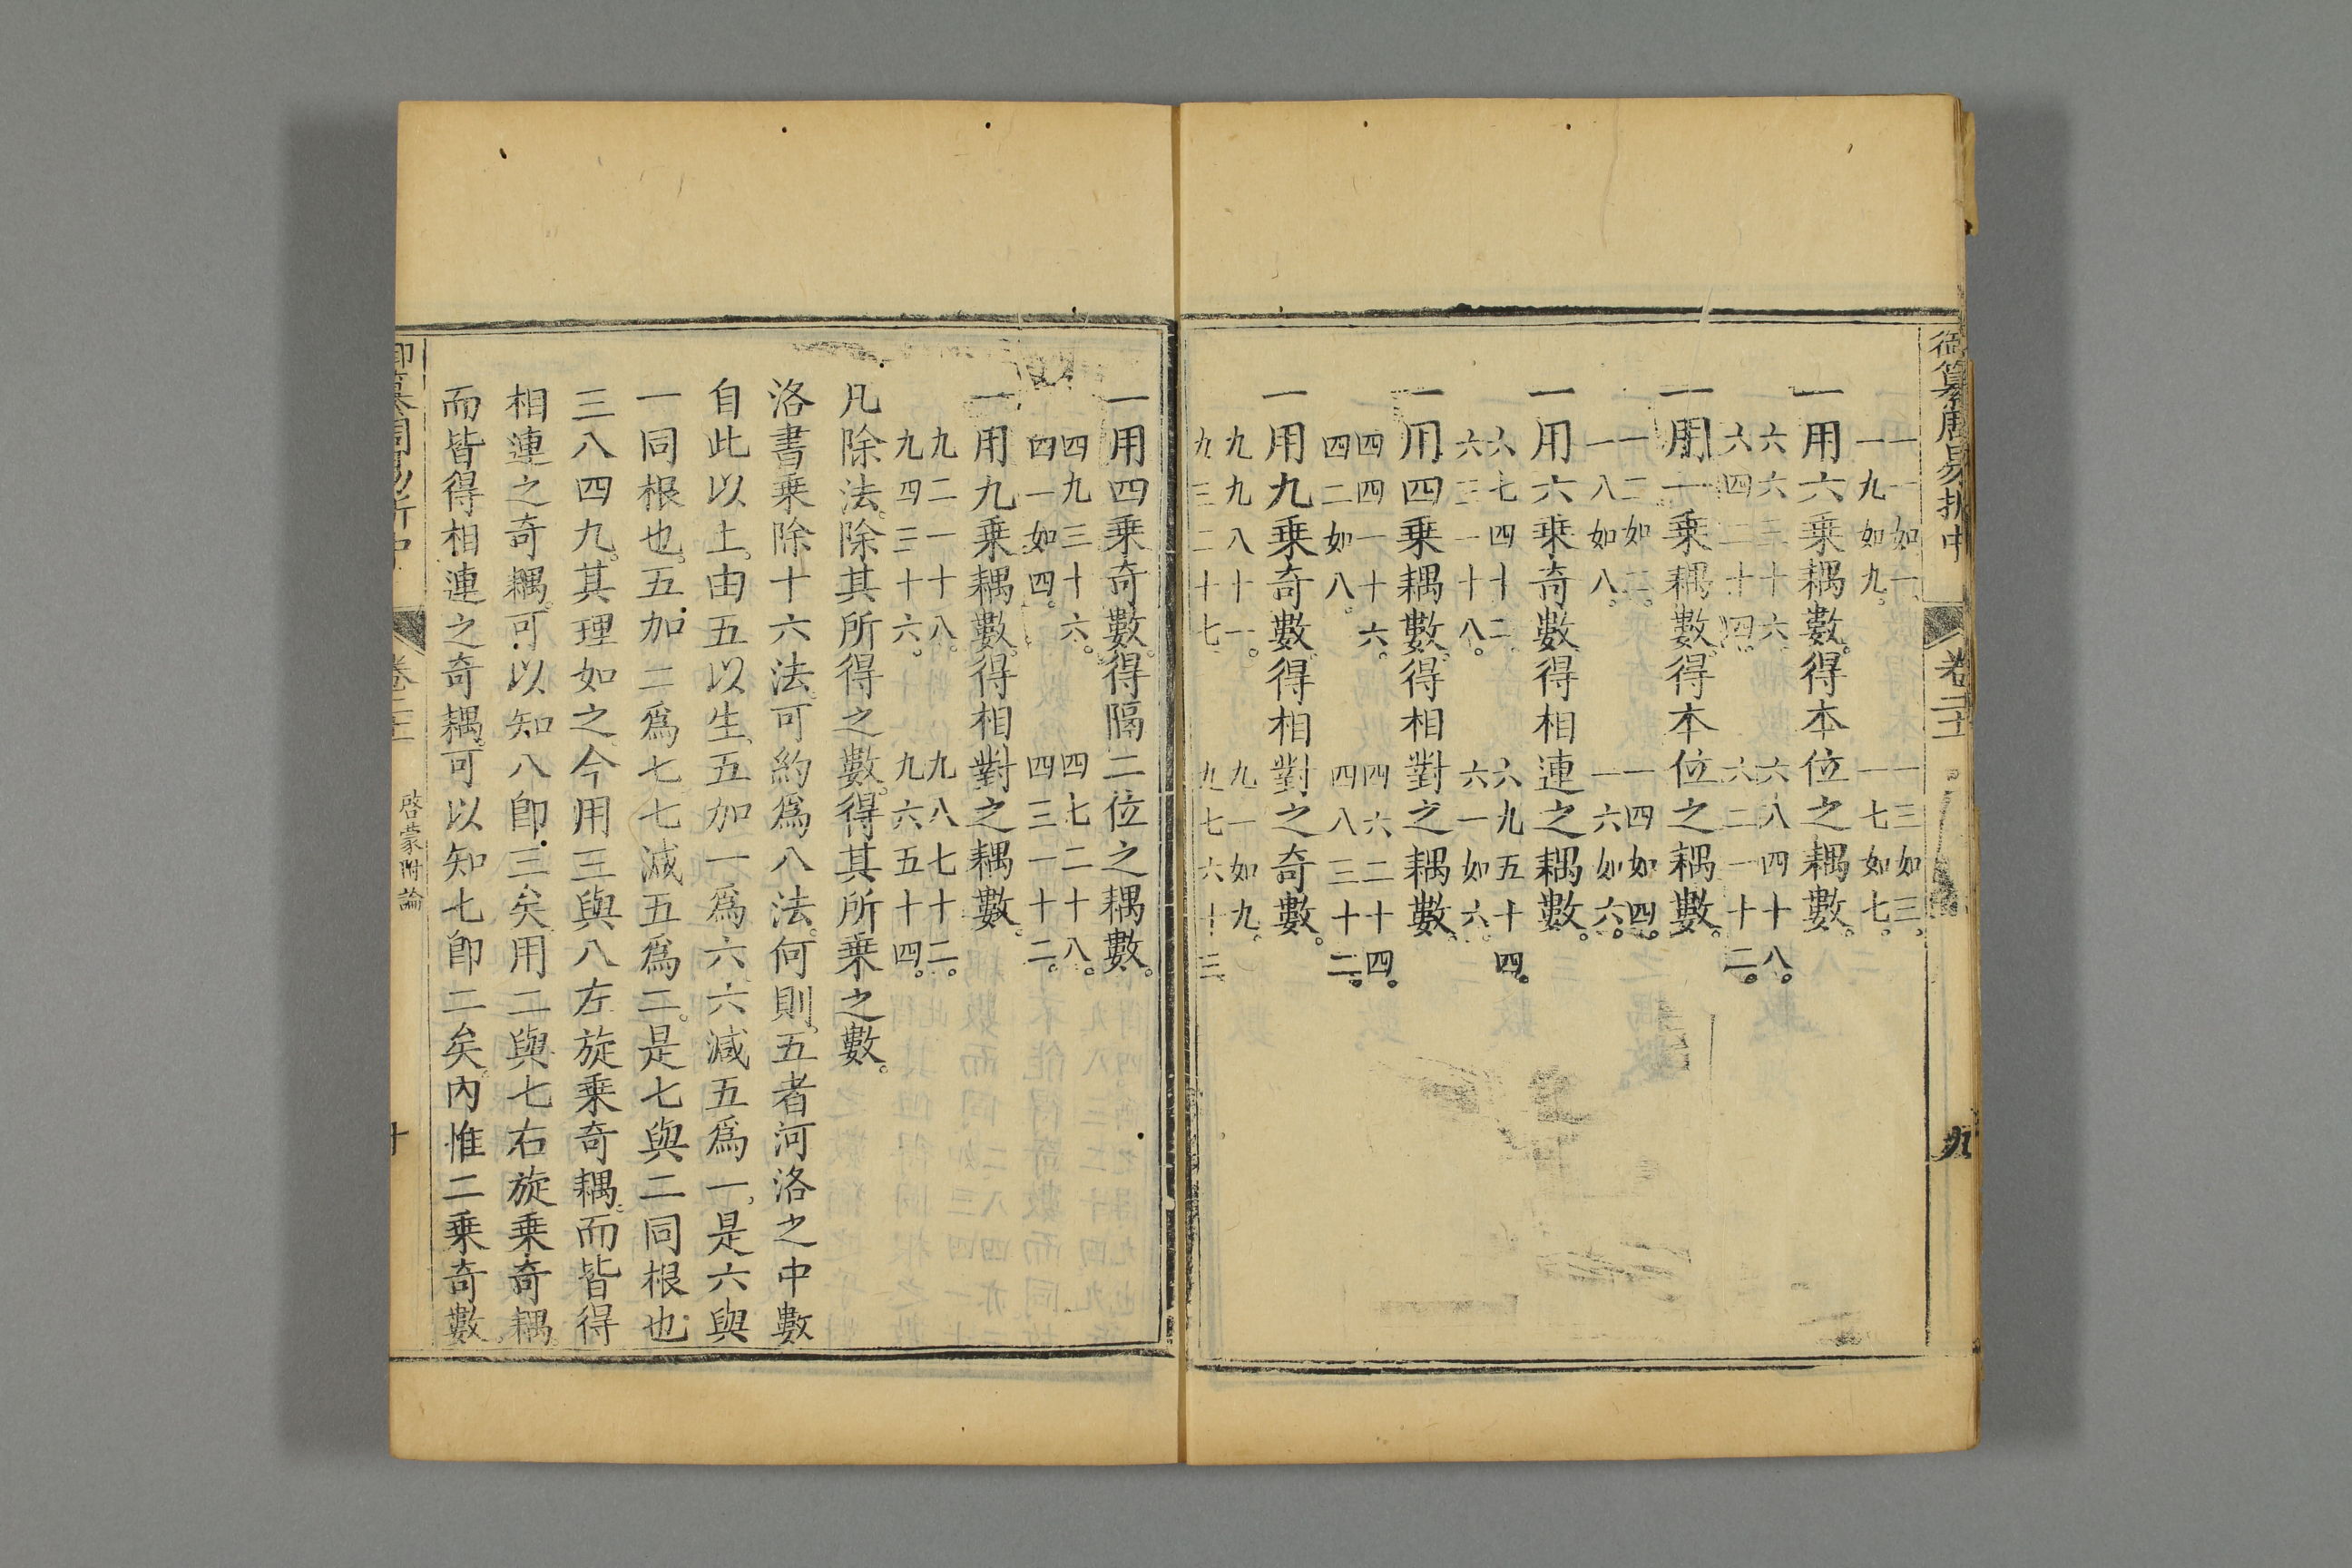 御纂周易折中
卷二十
九
一一如一。 一三如三。
一九如九。 一七如七。
一用六乗耦數。得本位之耦數。
六六三十六 六八四十八。
六四二十四。 六二一十二。
一用一乗耦數。得本位之耦數。
一二如二。 一四如四。
一八如八。 一六如六。
一用六乗奇數得相連之耦數。
六七四十二 六九五十四。
六三一十八。 六一如六。
一用四乗耦數。得相對之耦數
四四一十六。 四六二十四。
四二如八。 四八三十二。
一用九乗奇數得相對之奇數。
九九八十一。 九一如九。
九三二十七 九七六十三
一用四乗奇數。得隔二位之耦數。
四九三十六。 四七二十八。
四一如四。 四三一十二。
一用九乗耦數。得相對之耦數。
九二一十八。 九八七十二。
九四三十六。 九六五十四。
凡除法。除其所得之數。得其所乗之數。
洛書乗除十六法。可約爲八法。何則。五者河洛之中數
自此以土。由五以生。五加一爲六。六減五爲一。是六與
一同根也。五加二爲七。七減五爲二。是七與二同根也
三八四九。其理如之。今用三與八左旋乗奇耦。而皆得
相連之奇耦。可以知八卽三矣。用二與七右旋乗奇耦。
而皆得相連之奇耦。可以知七卽二矣。內惟二乗奇數
御纂周易折中
卷二十
啓蒙附論
十